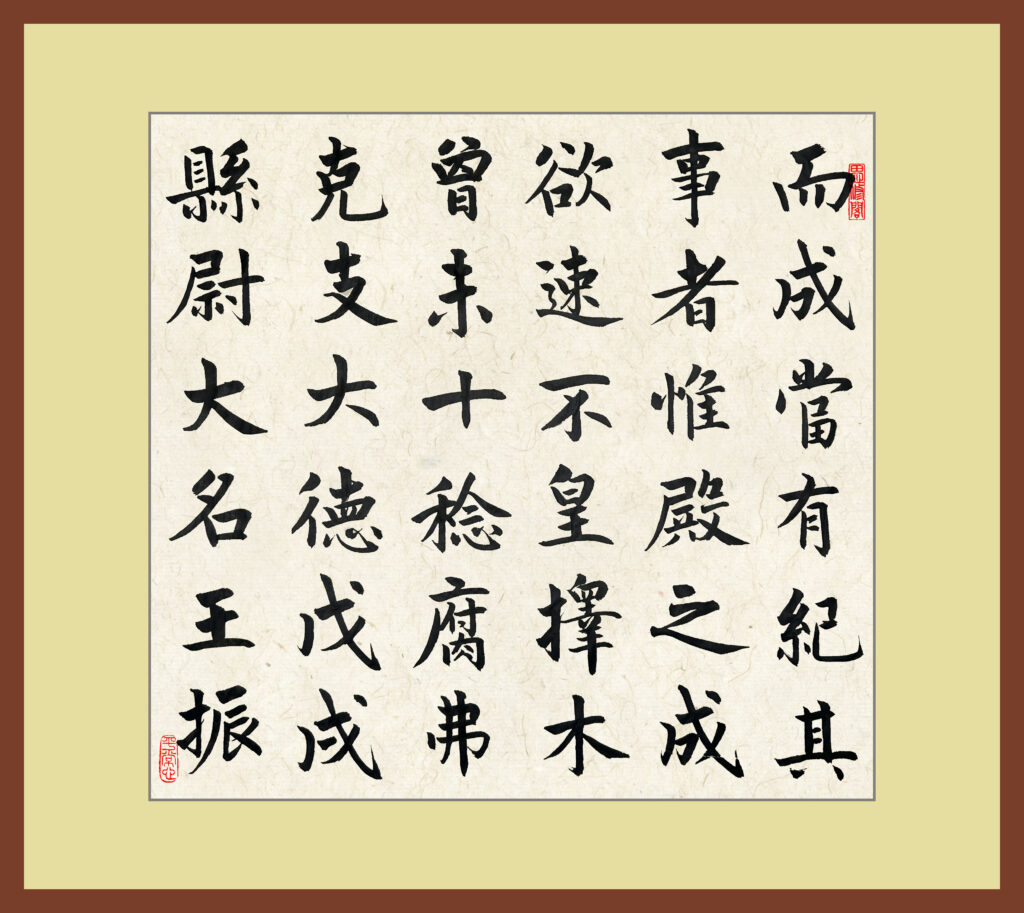 而成當有紀其
事者惟殿之成
欲速不皇擇木
曾未十稔腐弗
克支大德戊戌
縣尉大名王振